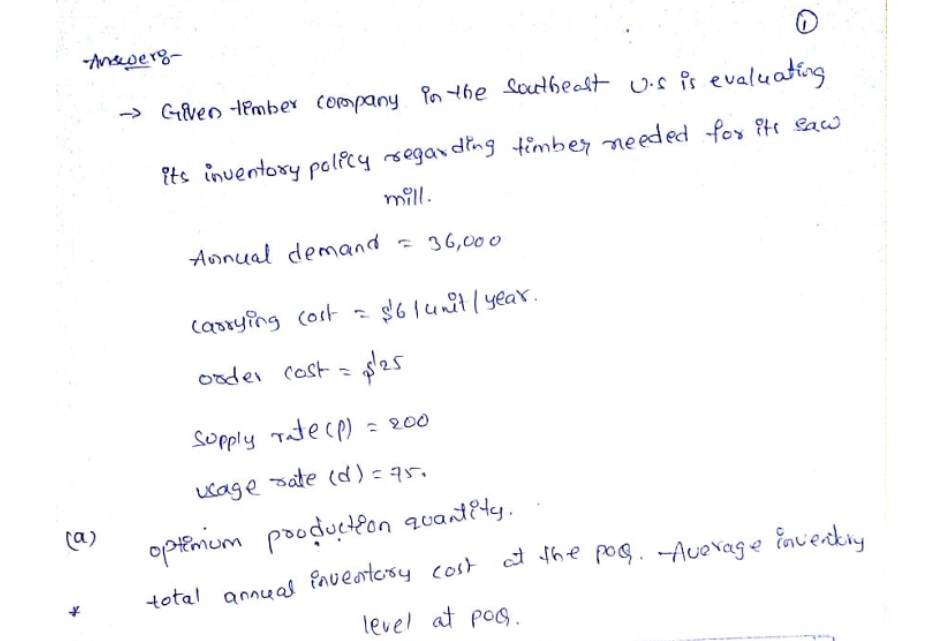 ①
Answer:-
→ Given timber company in the Southeast U.S is evaluating
its inventory policy regarding timber needed for its saw
mill.
Annual demand = 36,000
carrying cost = $6/unit/year.
order cost = $25
Supply rate (p) = 200
usage rate (d) = 75.
(a) optimum production quantity.
* total annual inventory cost at the POQ. Average inventory
level at POQ.